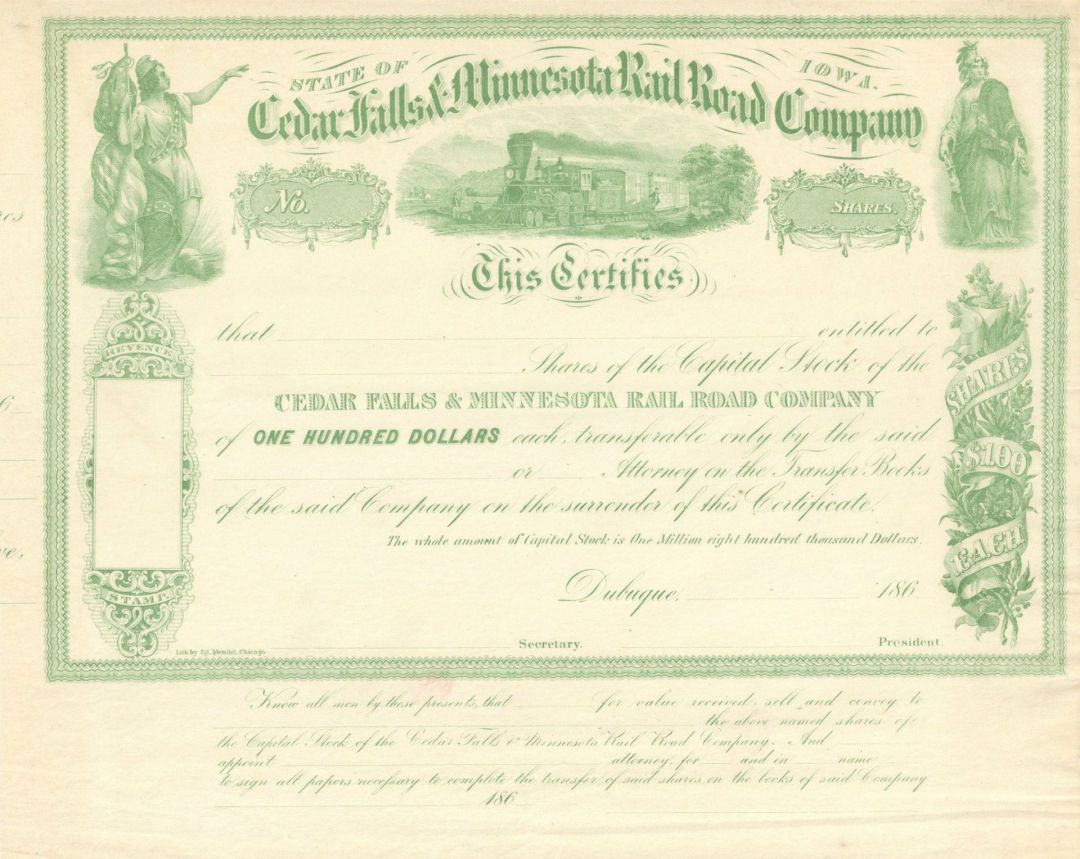 STATE OF IOWA.
Cedar Falls & Minnesota Rail Road Company
No.
SHARES.
This Certifies
that entitled to
Shares of the Capital Stock of the
CEDAR FALLS & MINNESOTA RAIL ROAD COMPANY
of ONE HUNDRED DOLLARS each, transferable only by the said
or Attorney on the Transfer Books
of the said Company on the surrender of this Certificate.
The whole amount of Capital Stock is One Million eight hundred thousand Dollars.
Dubuque, 186
Secretary. President.
Lith by Ed. Mendel, Chicago
REVENUE
STAMP.
SHARES
$100
EACH
Know all men by these presents, that for value received, sell and convey to
the above named shares of
the Capital Stock of the Cedar Falls & Minnesota Rail Road Company. And
appoint attorney for and in name
to sign all papers necessary to complete the transfer of said shares on the books of said Company
186